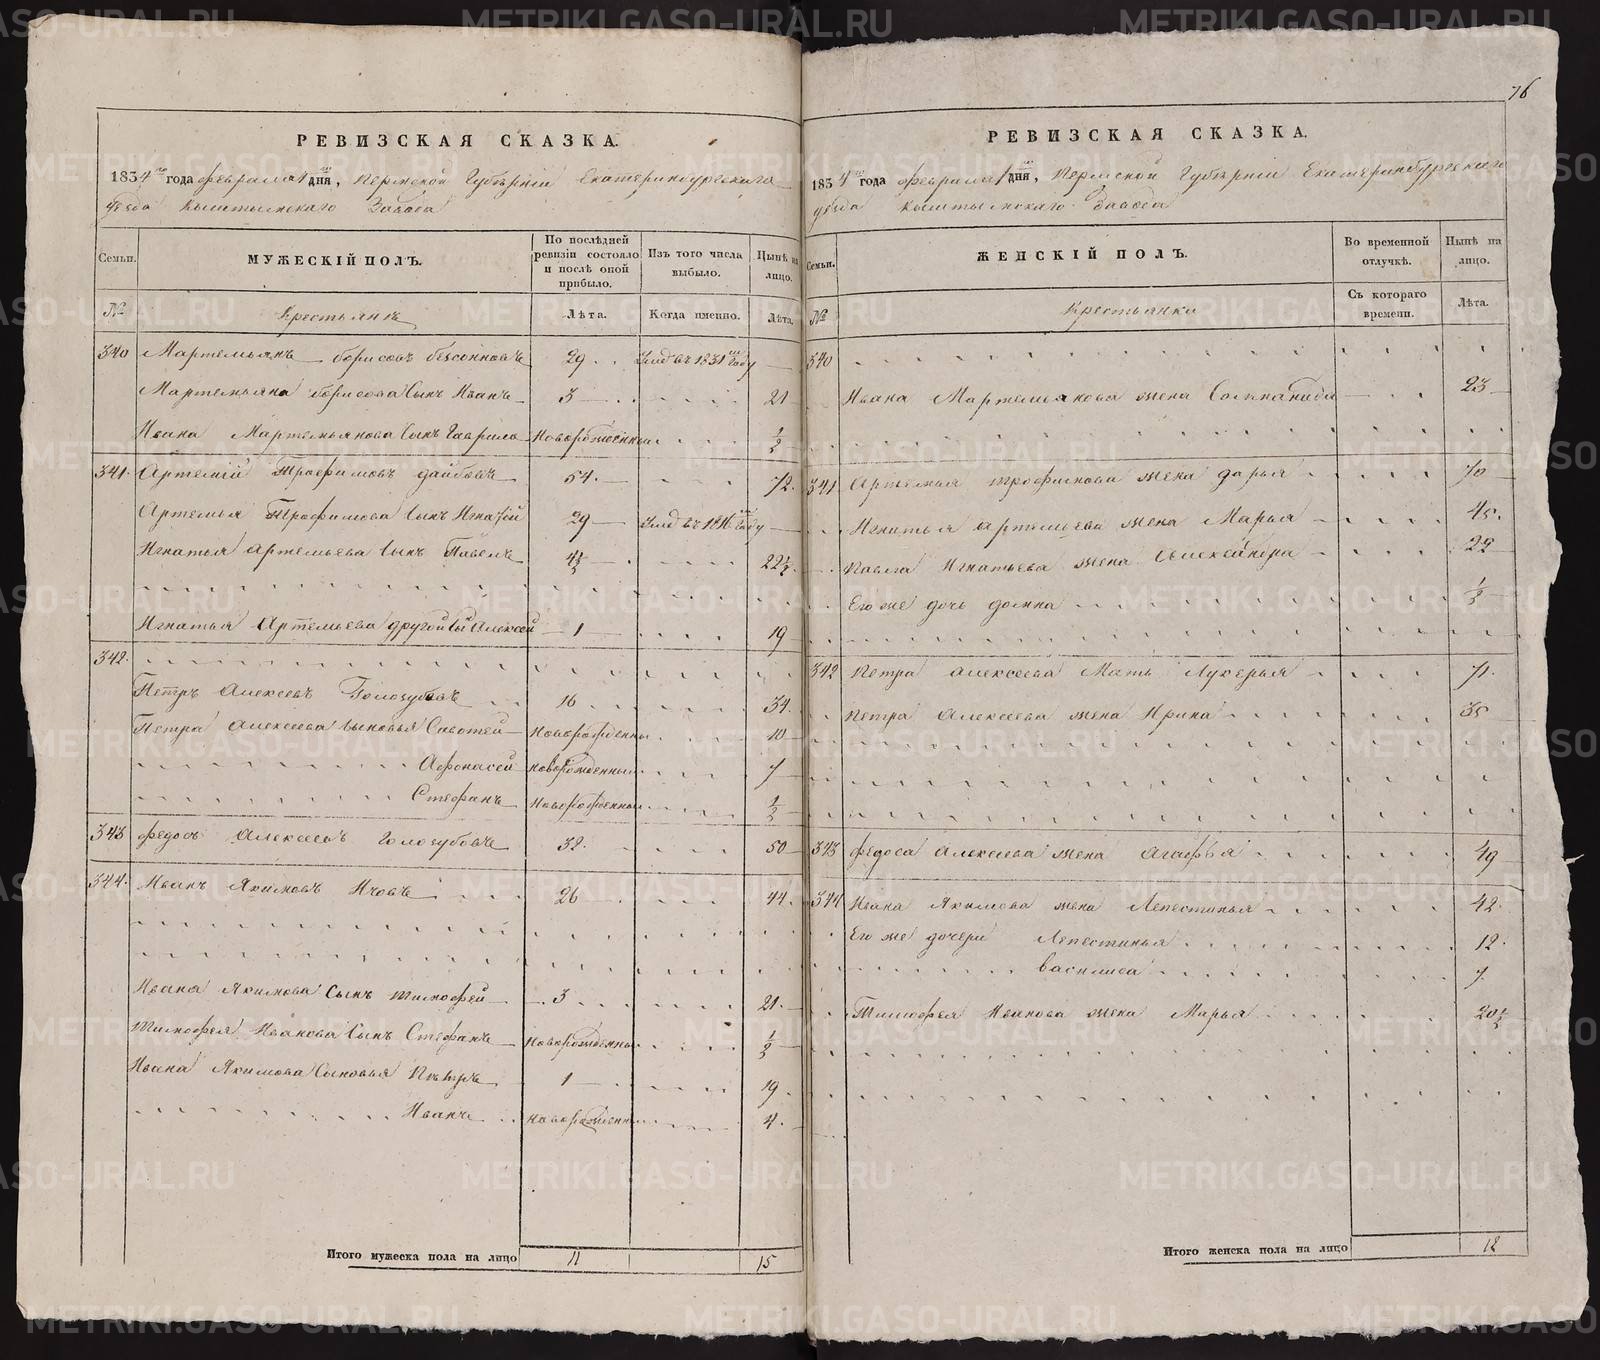 76
РЕВИЗСКАЯ СКАЗКА.
1834го года февраля 1 дня, Пермской Губернiи Екатеринбургскаго
уезда Кыштымскаго Завода
Семьи.
МУЖЕСКIЙ ПОЛЪ.
По послѣдней ревизiи состояло и послѣ оной прибыло.
Изъ того числа выбыло.
Нынѣ на лицо.
№
Крестьянъ
Лѣта.
Когда именно.
Лѣта.
340 Мартемьянъ Борисовъ 29 въ 1831 году
Мартемьяна Борисова Сынъ Иванъ 3 21
Ивана Мартемьянова Сынъ Гаврило Новорожденный 1/2
341. Артемiй Трофимовъ 54. 72.
Артемья Трофимова Сынъ Игнатiй 29 году
Игнатья Артемьева Сынъ Павелъ 4 1/2 22 1/2.
Игнатья Артемьева другой Сынъ Алексей 1 19
342.
Петръ Алексеевъ Голозубовъ 16 34.
Петра Алексеева Сыновья Савотей Новорожденны 10
Афонасей новорожденный 7
Стефанъ Новорожденный 1/2
343 Федосъ Алексеевъ Голозубовъ 32. 50
344. Иванъ Якимовъ 26 44.
Ивана Якимова Сынъ Тимофей 3 21.
Тимофея Иванова Сынъ Стефанъ Новорожденны 1/2
Ивана Якимова Сыновья Петръ 1 19.
Иванъ новорожденны 4.
Итого мужеска пола на лицо 11 15
РЕВИЗСКАЯ СКАЗКА.
1834го года февраля 1 дня, Пермской Губернiи Екатеринбургскаго
уезда Кыштымскаго Завода
Семьи.
ЖЕНСКIЙ ПОЛЪ.
Во временной отлучкѣ.
Нынѣ на лицо.
№
Крестьянки
Съ котораго времени.
Лѣта.
340
Ивана Мартемьянова жена 23
341 Артемья Трофимова жена Дарья 70
Игнатья Артемьева жена Марья 45.
Павла Игнатьева жена 22
Его же дочь Домна 1/2
342 Петра Алексеева Мать Лукерья 71.
Петра Алексеева жена Ирина 35
343 Федоса Алексеева жена Агафья 49
344 Ивана Якимова жена Лепестинья 42.
Его же дочери Лепестинья 12.
Василиса 7.
Тимофея Иванова жена Марья 20 1/2
Итого женска пола на лицо 12
METRIKI.GASO-URAL.RU